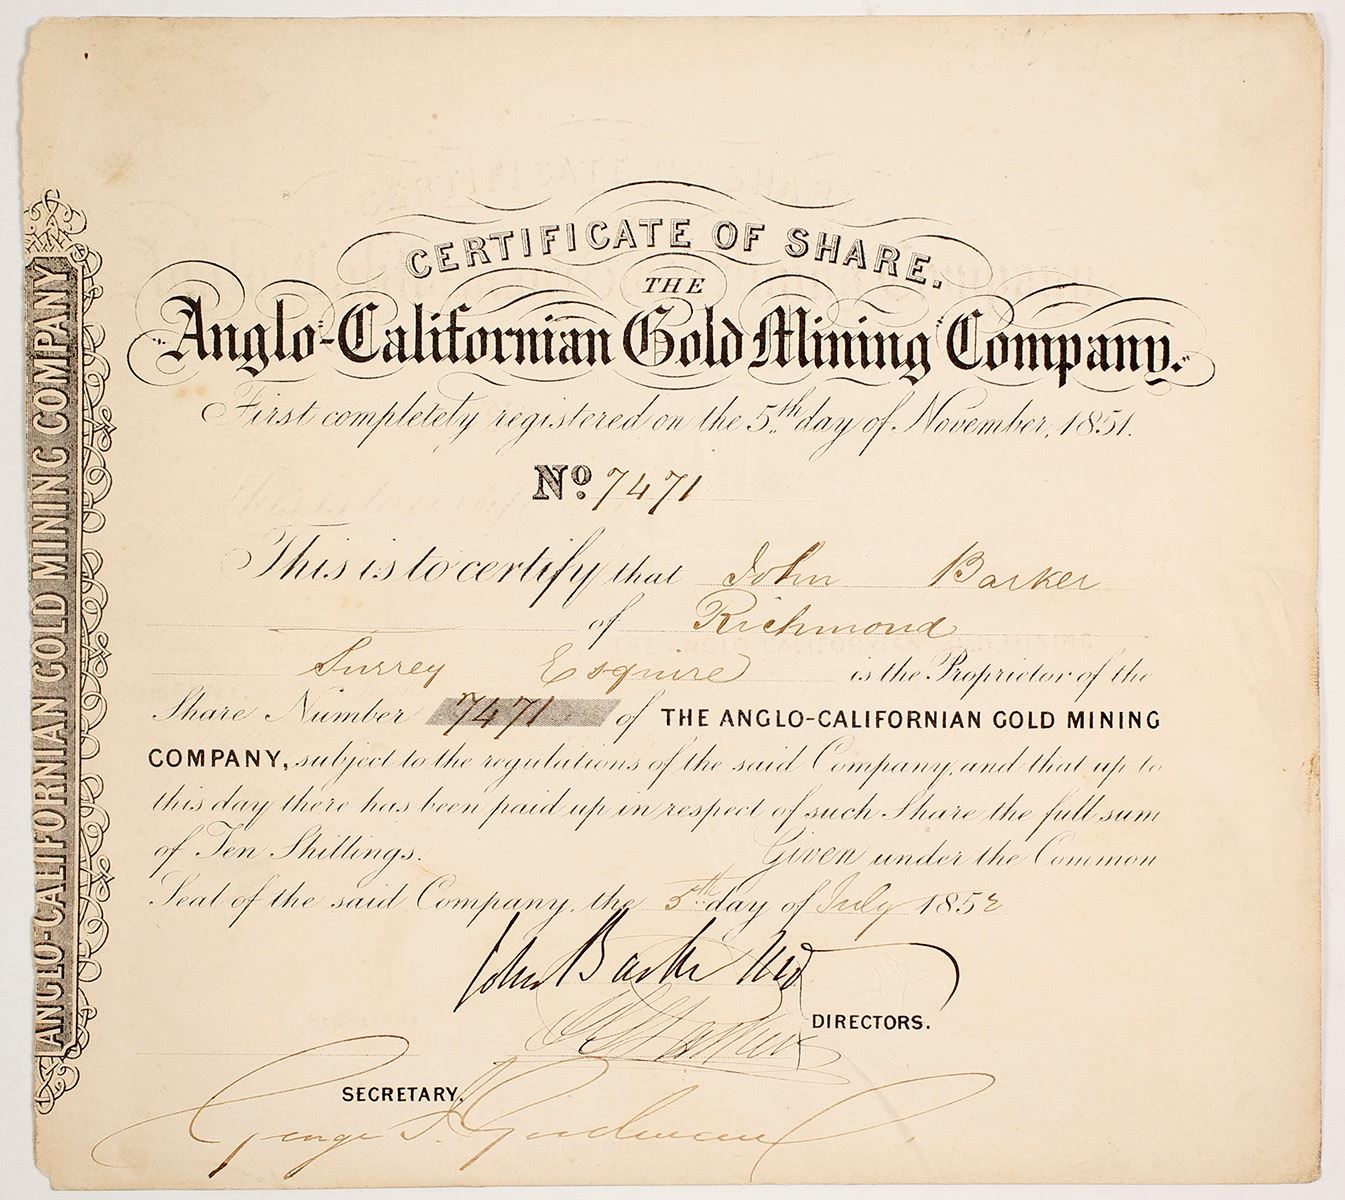 CERTIFICATE OF SHARE.
THE
Anglo-Californian Gold Mining Company.
First completely registered on the 5th day of November, 1851.
No. 7471
This is to certify that John Barker
of Richmond
Surrey Esquire is the Proprietor of the
Share Number 7471 of THE ANGLO-CALIFORNIAN GOLD MINING
COMPANY, subject to the regulations of the said Company, and that up to
this day there has been paid up in respect of such Share the full sum
of Ten Shillings. Given under the Common
Seal of the said Company, the 5th day of July 1852
John Barker
DIRECTORS.
SECRETARY.
George
ANGLO-CALIFORNIAN GOLD MINING COMPANY